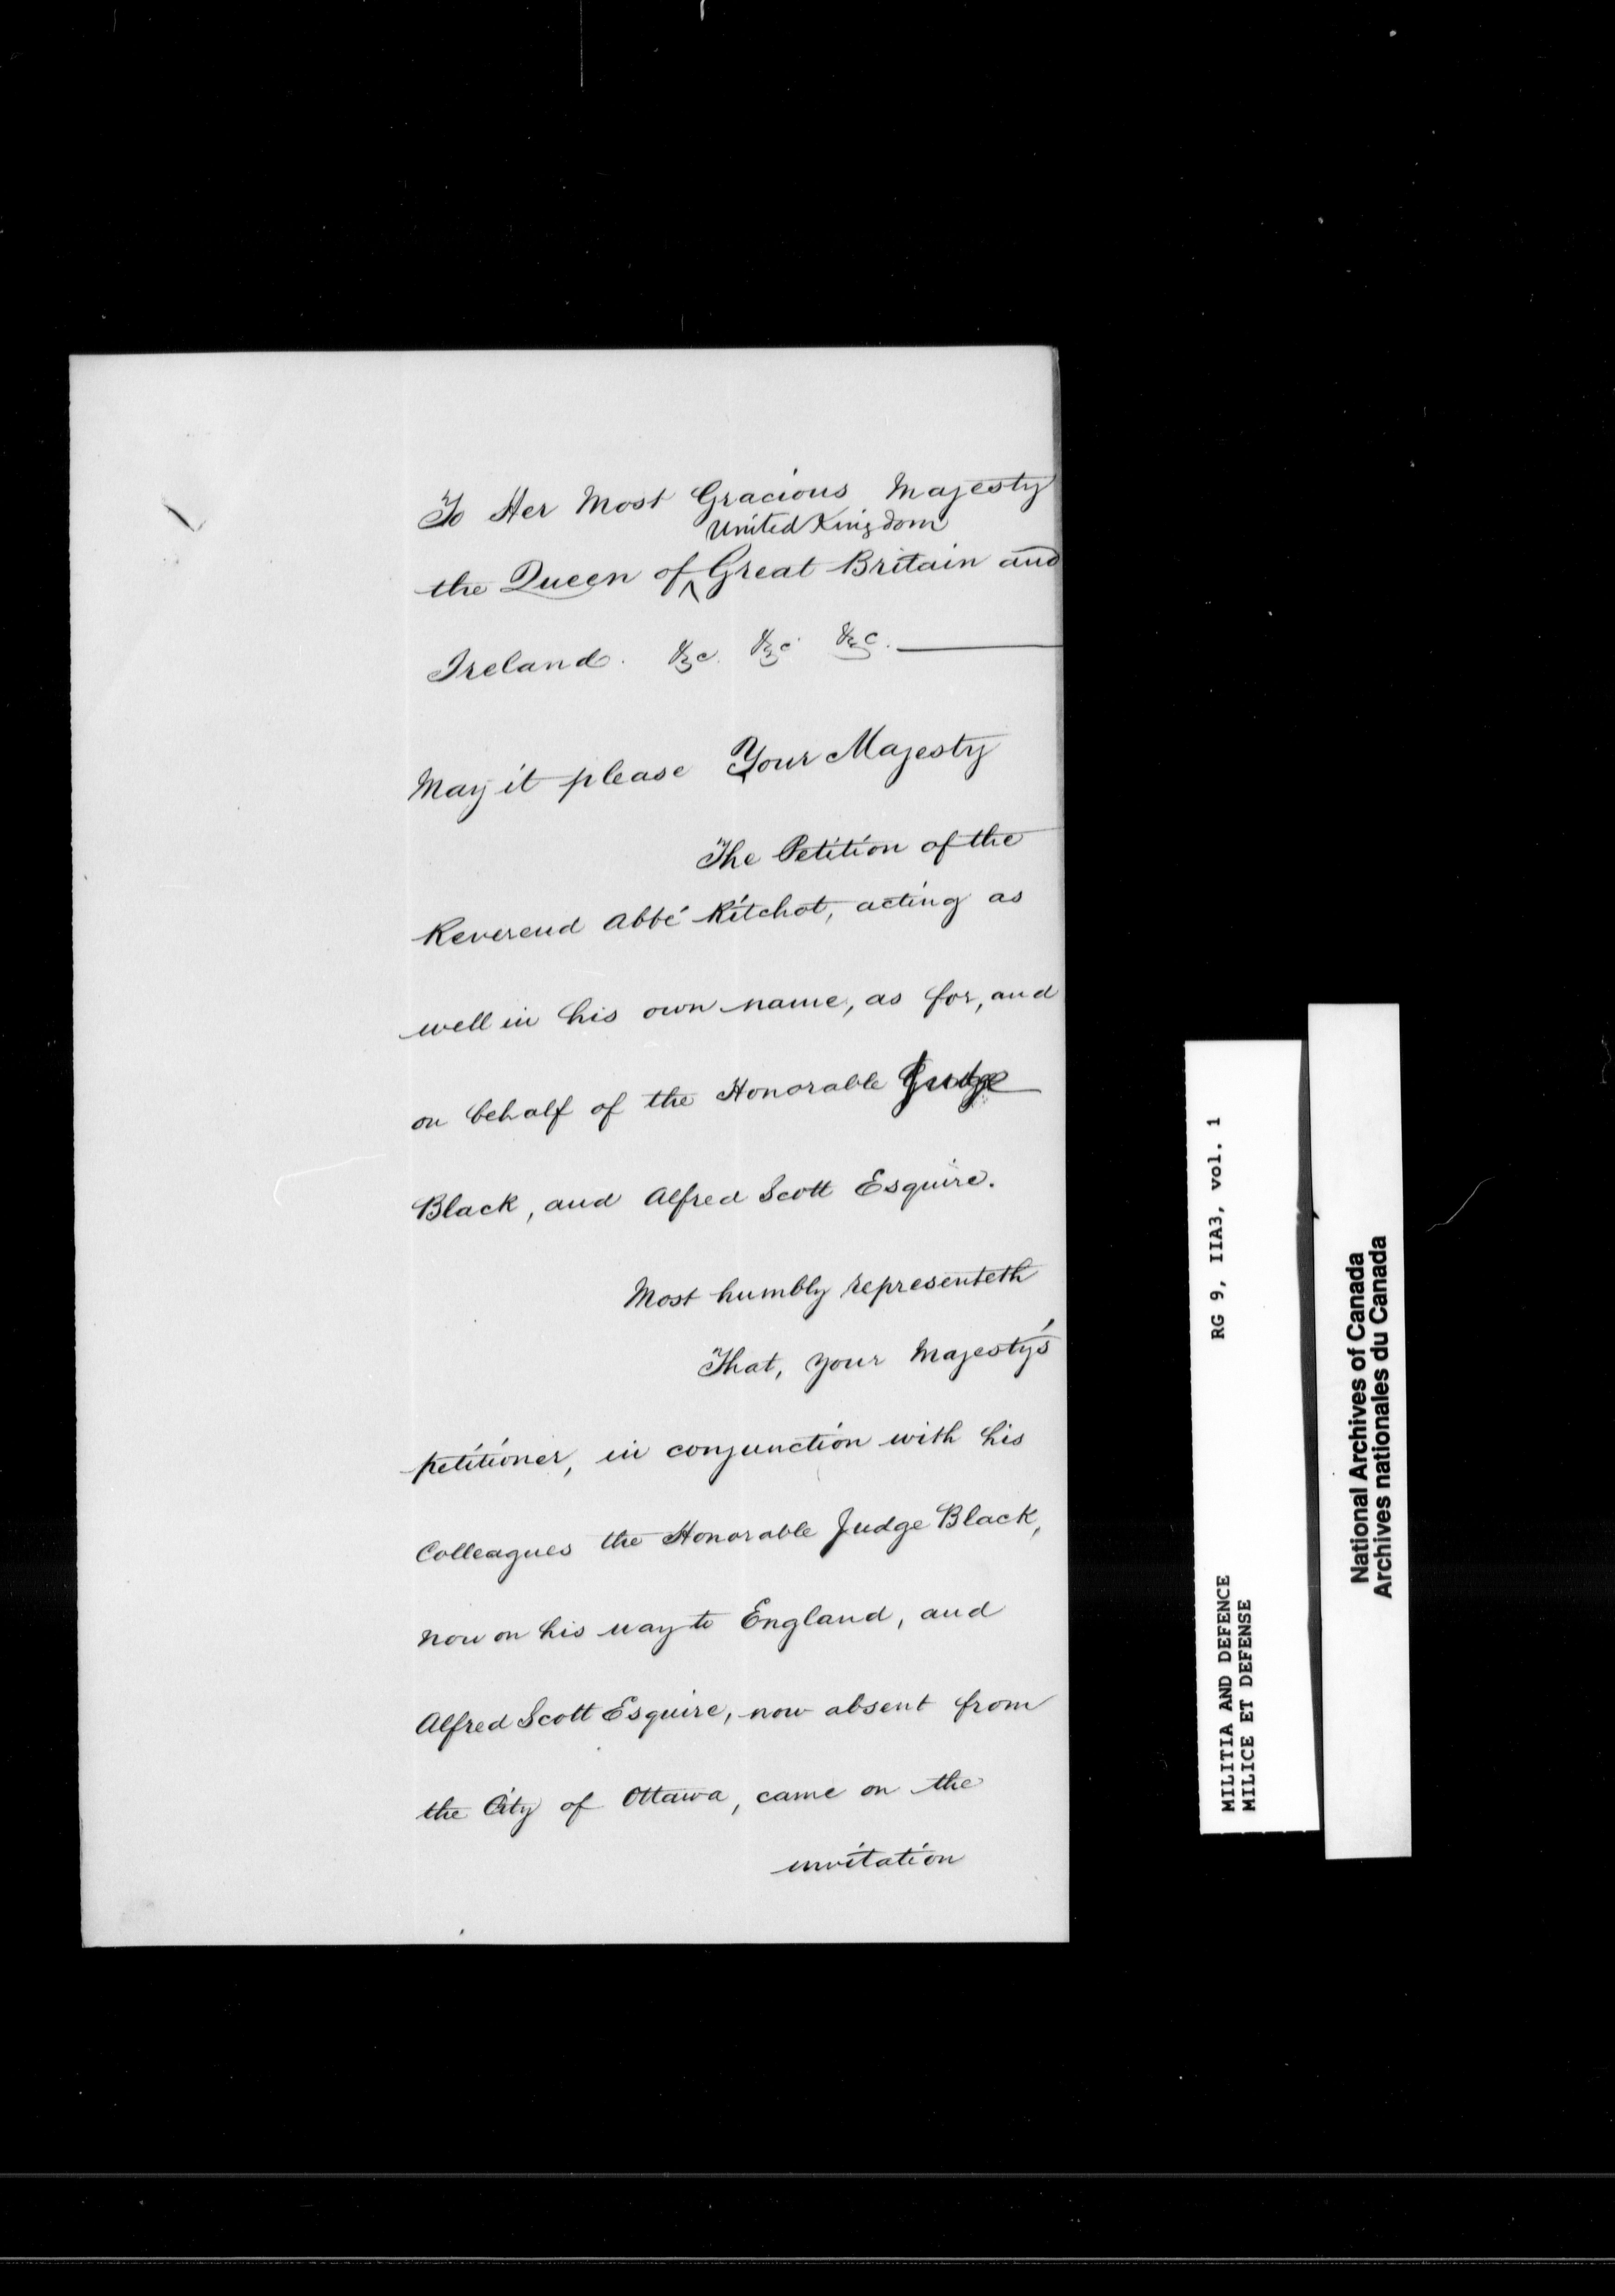 To Her Most Gracious Majesty
United Kingdom
the Queen of ^ Great Britain and
Ireland. &c. &c. &c.
May it please Your Majesty
The Petition of the
Reverend Abbé Ritchot, acting as
well in his own name, as for, and
on behalf of the Honorable Judge
Black, and Alfred Scott Esquire.
Most humbly representeth
That, your Majesty's
petitioner, in conjunction with his
Colleagues the Honorable Judge Black,
now on his way to England, and
Alfred Scott Esquire, now absent from
the City of Ottawa, came on the
invitation
MILITIA AND DEFENCE RG 9, IIA3, vol. 1
MILICE ET DEFENSE
National Archives of Canada
Archives nationales du Canada